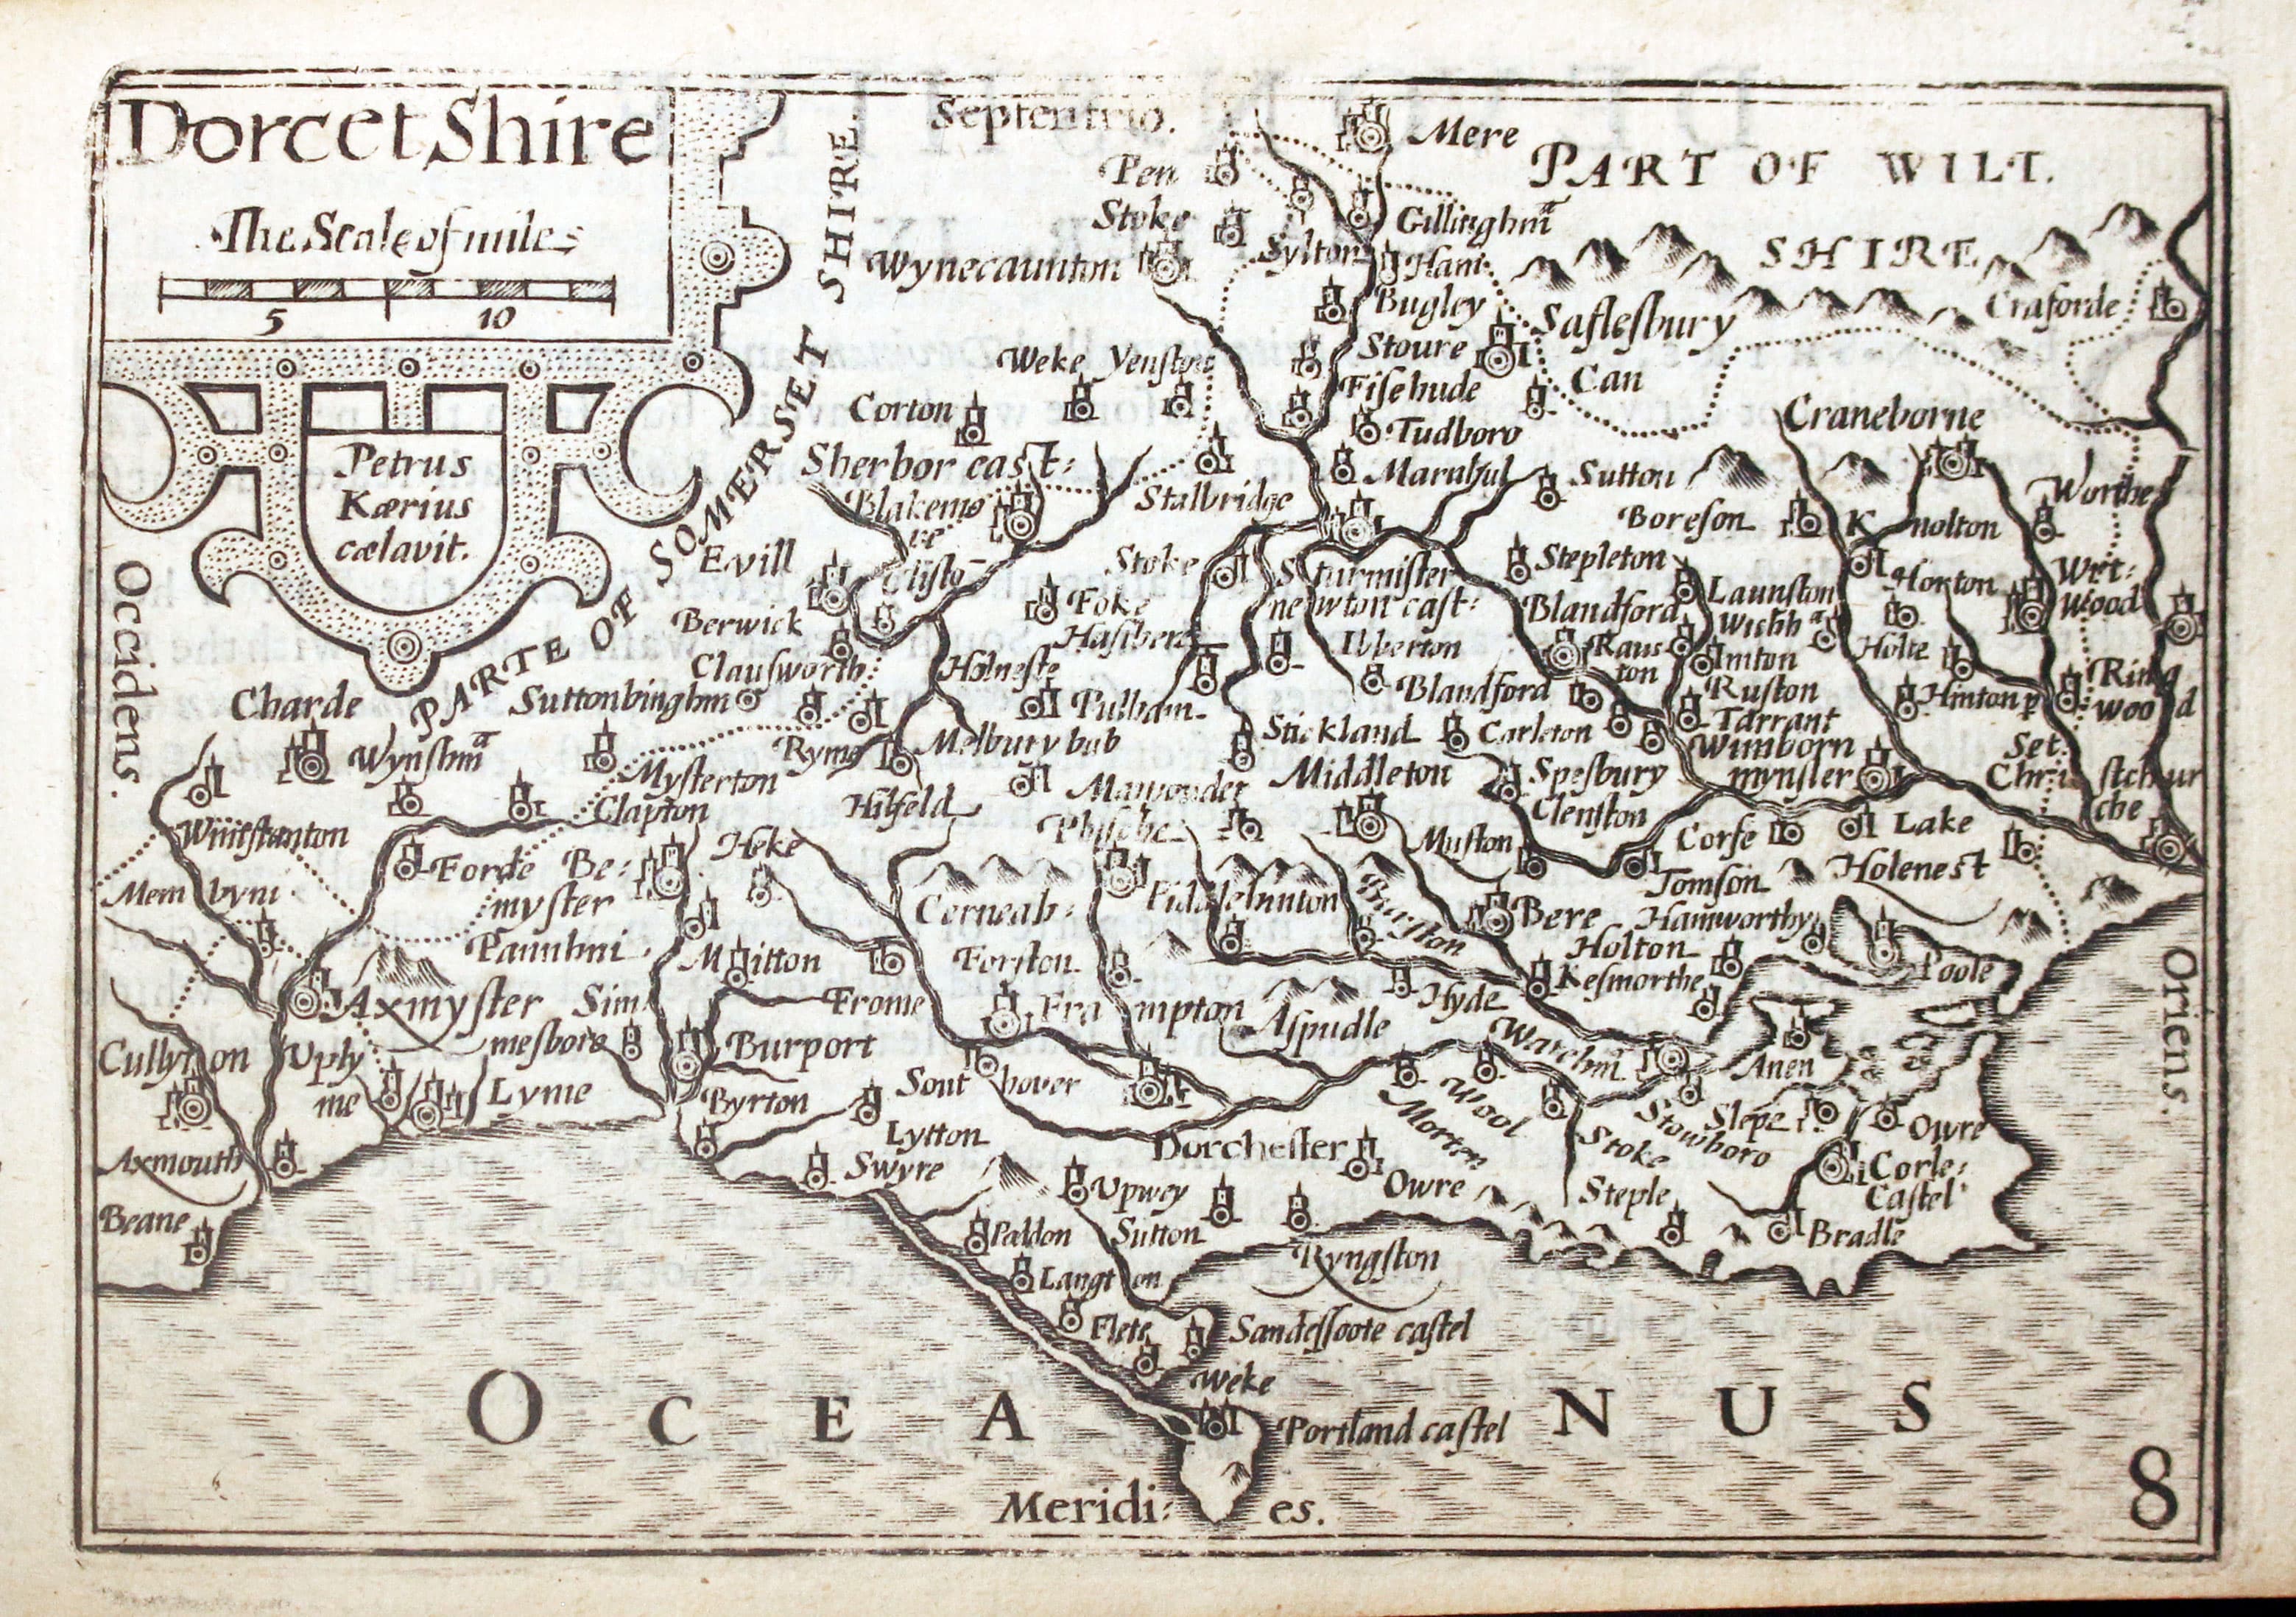 Dorcet Shire
The Scale of miles
5 10
Petrus
Kærius
cælavit.
Septentrio.
Occidens.
Oriens.
Meridi: es.
PARTE OF SOMERSET SHIRE.
PART OF WILT.
SHIRE
Mere
Pen
Stoke
Gillinghm̃a
Sylton
Ham
Wynecaunton
Bugley
Craforde
Saflesbury
Stoure
Weke Yenston
Fifehude
Can
Corton
Tudboro
Craneborne
Sherbor cast:
Marnhul
Sutton
Blakemo
re
Stalbridge
Worthe
Boreson
Knolton
Evill
Clifto
Stoke
Sturmister
newton cast:
Stepleton
Launston
Horton
Wert:
Wood
Foke
Blandford
Berwick
Haselbere
Ibberton
Raus
ton
Holte
Clausworth
Holneste
Blandford
Ruston
Hinton p
Ring
wood
Charde
Suttonbinghm
Pulham
Stickland
Carleton
Tarrant
Wynshm̃a
Ryme
Melbury bub
Wimborn
mynster
Set.
Mysterton
Middleton
Spesbury
Christchur
che
Clapton
Hilfeld
Clenston
Winstanton
Forde
Be:
myster
Heke
Muston
Corfe
Lake
Membyni
Cerneab:
Piddlehinton
Burston
Tomson
Holenest
Bere
Hamworthy
Holton
Forston
Kesmorthe
Poole
Axmyster
Sim
mesboro
Frome
Frampton
Hyde
Aspudle
Cullyton
Uply
me
Burport
Anen
Lyme
Byrton
Southover
Wool
Morten
Stowboro
Slepe
Owre
Stoke
Axmouth
Lytton
Swyre
Dorchester
Upwey
Owre
Steple
Corfe:
Castel
Beane
Sutton
Bradle
Langton
Ryngston
Flete
Sandesfoote castel
Weke
Portland castel
OCEANUS
8